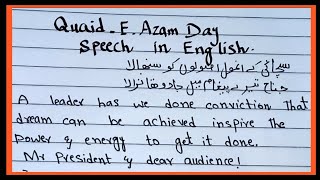 Quaid-E.Azam Day
Speech in English.
سچائی کے انمول اصولوں کو سنبھالا
جناح تیرے پیغام میں جادو تھا نرالا
A leader has we done conviction that
dream can be achieved inspire the
power & energy to get it done.
Mr President & dear audience!